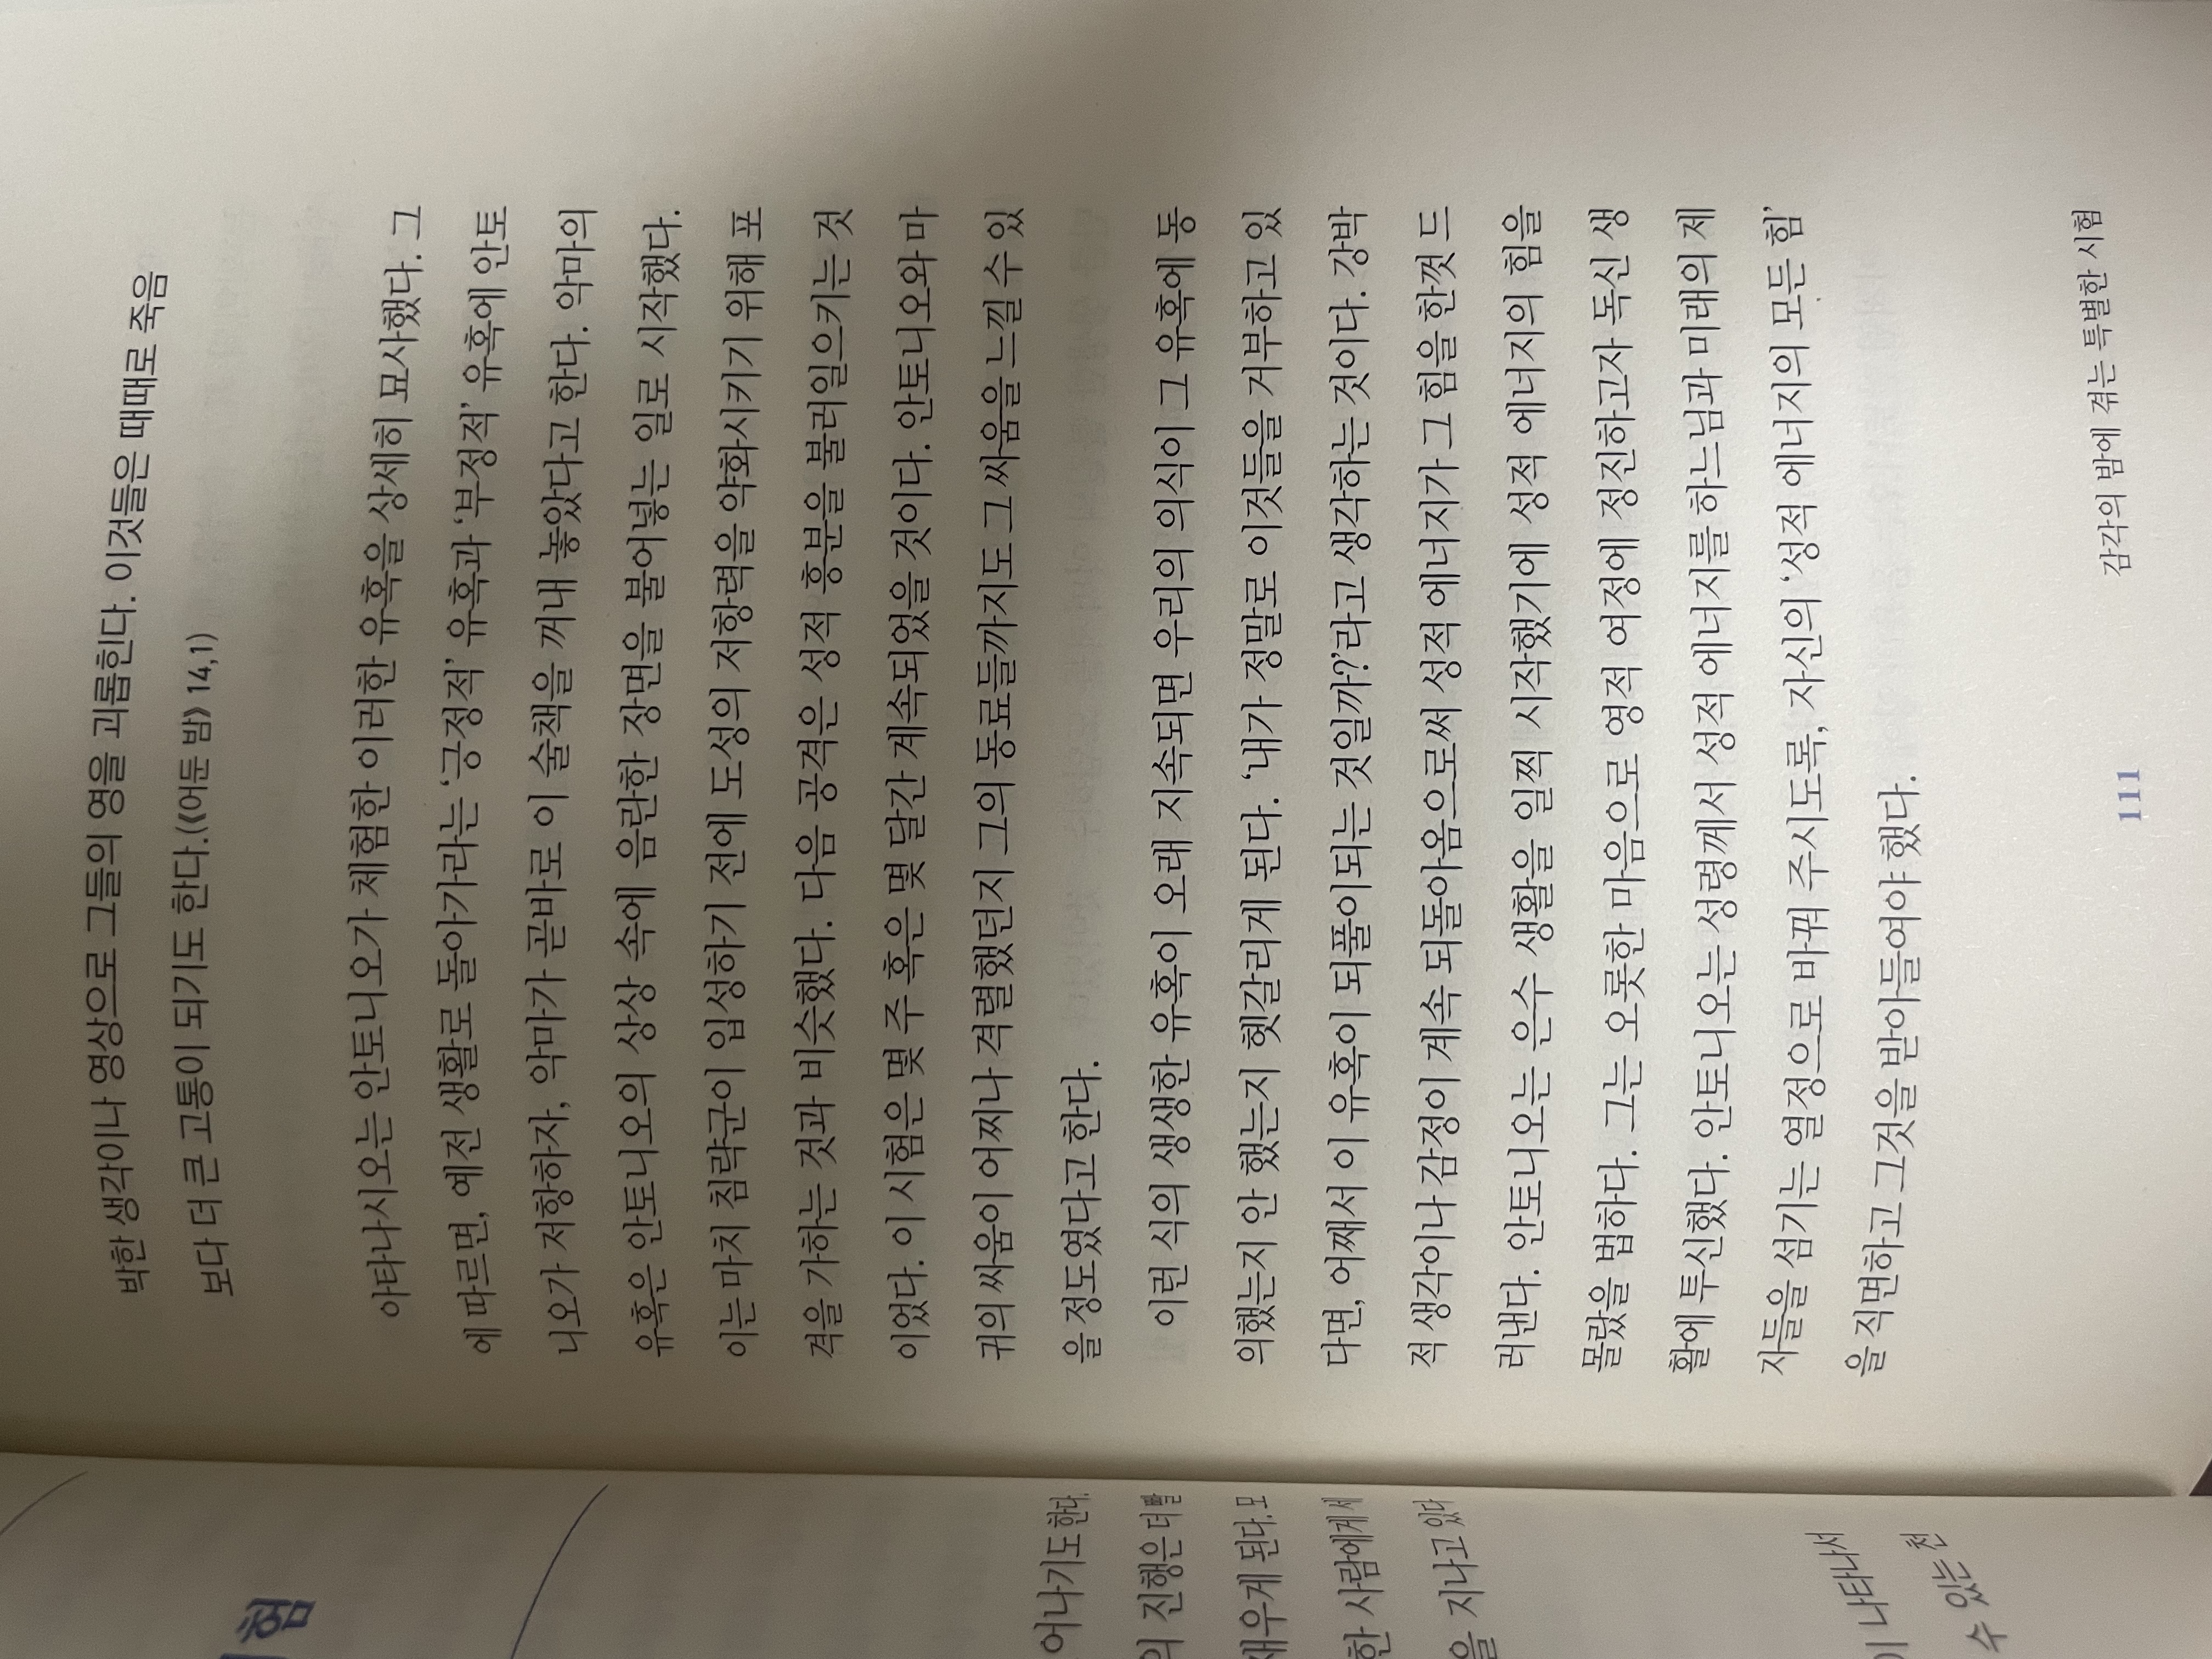 박한 생각이나 영상으로 그들의 영을 괴롭힌다. 이것들은 때때로 죽음
보다 더 큰 고통이 되기도 한다.(《어둔 밤》 14,1)
아타나시오는 안토니오가 체험한 이러한 유혹을 상세히 묘사했다. 그
에 따르면, 예전 생활로 돌아가라는 ‘긍정적’ 유혹과 ‘부정적’ 유혹에 안토
니오가 저항하자, 악마가 곧바로 이 술책을 꺼내 놓았다고 한다. 악마의
유혹은 안토니오의 상상 속에 음란한 장면을 불어넣는 일로 시작했다.
이는 마치 침략군이 입성하기 전에 도성의 저항력을 약화시키기 위해 포
격을 가하는 것과 비슷했다. 다음 공격은 성적 흥분을 불러일으키는 것
이었다. 이 시험은 몇 주 혹은 몇 달간 계속되었을 것이다. 안토니오와 마
귀의 싸움이 어찌나 격렬했던지 그의 동료들까지도 그 싸움을 느낄 수 있
을 정도였다고 한다.
이런 식의 생생한 유혹이 오래 지속되면 우리의 의식이 그 유혹에 동
의했는지 안 했는지 헷갈리게 된다. ‘내가 정말로 이것들을 거부하고 있
다면, 어째서 이 유혹이 되풀이되는 것일까?’라고 생각하는 것이다. 강박
적 생각이나 감정이 계속 되돌아옴으로써 성적 에너지가 그 힘을 한껏 드
러낸다. 안토니오는 은수 생활을 일찍 시작했기에 성적 에너지의 힘을
몰랐을 법하다. 그는 오롯한 마음으로 영적 여정에 정진하고자 독신 생
활에 투신했다. 안토니오는 성령께서 성적 에너지를 하느님과 미래의 제
자들을 섬기는 열정으로 바꿔 주시도록, 자신의 ‘성적 에너지의 모든 힘’
을 직면하고 그것을 받아들여야 했다.
111 감각의 밤에 겪는 특별한 시험
험
어나기도 한다.
의 진행은 더 빨
새우게 된다. 모
한 사람에게서
을 지나고 있다
이 나타나서
수 있는 천